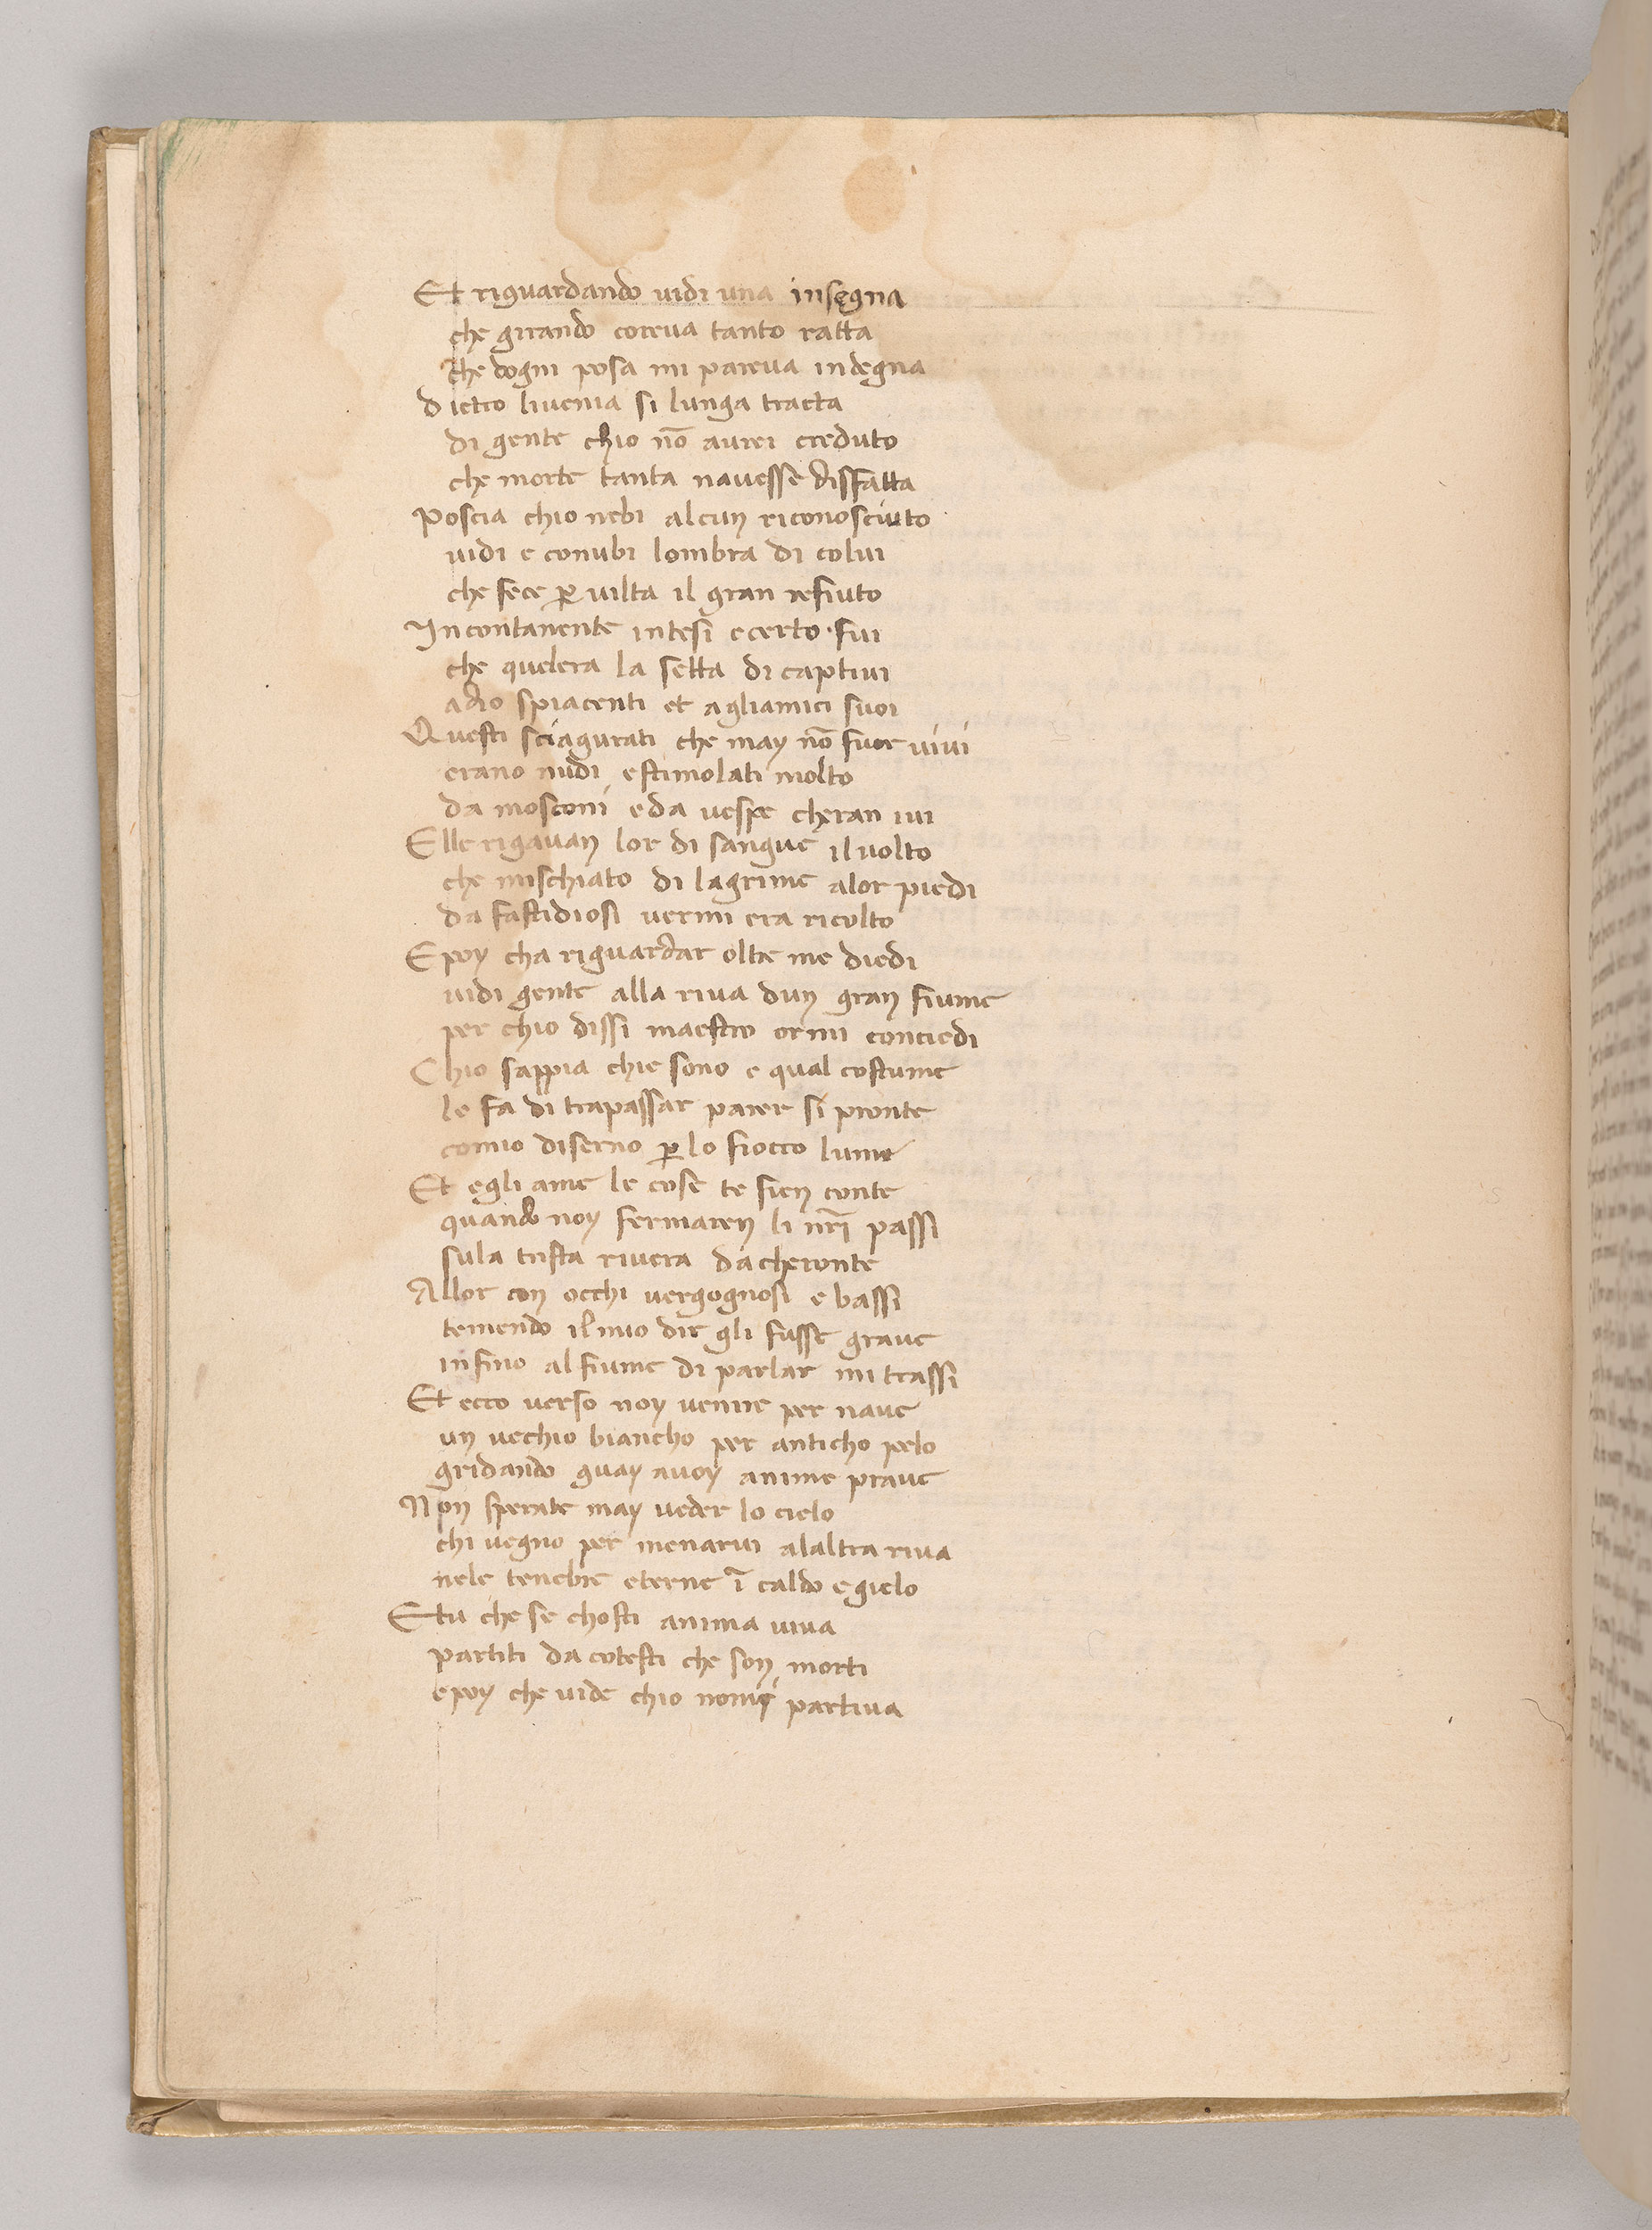 Et riguardando uidi una insegna
che girando correua tanto ratta
che dogni posa mi pareua indegna
dietro liuenia si lunga tracta
di gente chio nō aurei creduto
che morte tanta nauesse disfatta
Poscia chio nebi alcun riconosciuto
uidi e conubi lombra di colui
che fece ꝑ uilta il gran refiuto
Incontanente intesi e certo fui
che quelera la setta di captiui
adio spiacenti et agliamici suoi
Questi sciagurati che may nō fuor uiui
erano nudi estimolati molto
da mosconi eda uespe cheran iui
Elle rigauan lor di sangue iluolto
che mischiato di lagrime alor piedi
da fastidiosi uermi era ricolto
Epoy cha riguardar oltre me diedi
uidi gente alla riua dun gran fiume
per chio dissi maestro ormi conciedi
Chio sappia chie sono e qual costume
le fa di trapassar parer si pronte
comio diserno ꝑ lo fiocco lume
Et egli ame le cose te fien conte
quando noy fermaren li nr̄i passi
sula trista riuera dacheronte
Allor con occhi uergognosi e bassi
temendo ilmio dir gli fusse graue
infino alfiume di parlar mi trassi
Et ecco uerso noy uenire per naue
un uechio biancho per anticho pelo
gridando guay auoy anime praue
Non sperate may ueder lo cielo
chi uegno per menarui alaltra riua
nele tenebre eterne ī caldo egielo
Etu che se chosti anima uiua
partiti da cotesti che son morti
epoy che uide chio nomi partiua